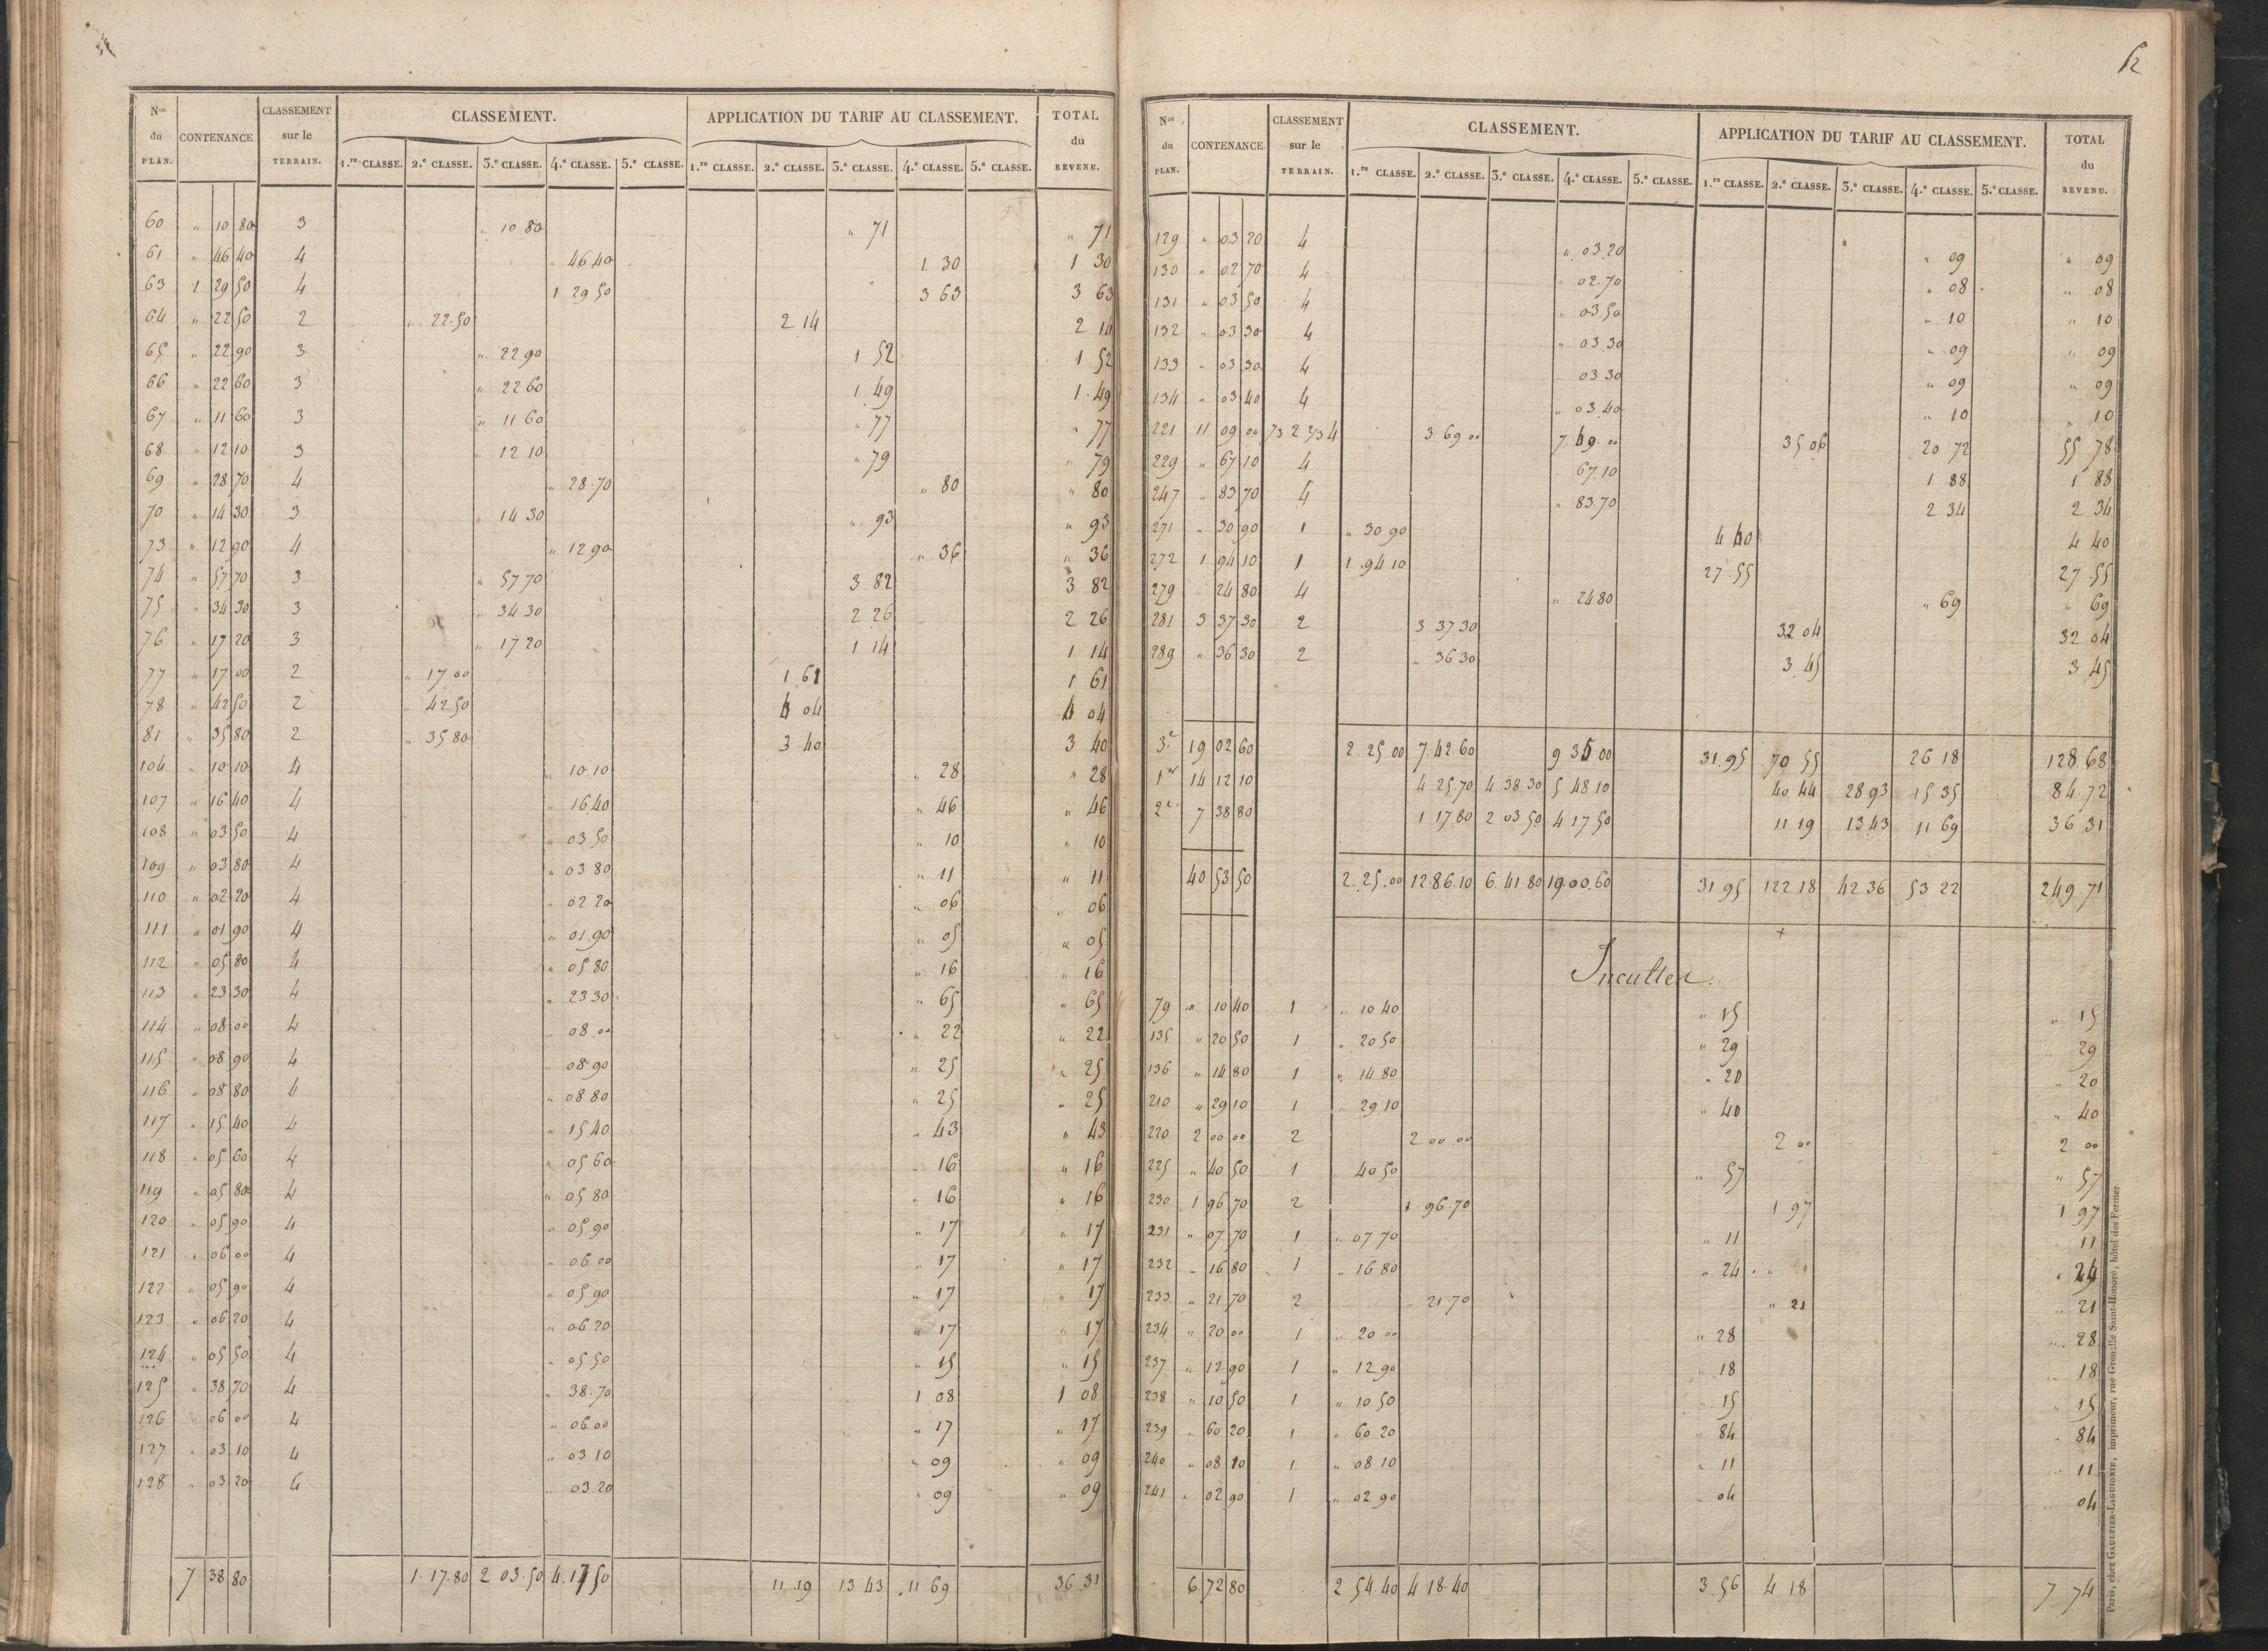 Nos du PLAN. CONTENANCE CLASSEMENT sur le TERRAIN. CLASSEMENT. APPLICATION DU TARIF AU CLASSEMENT. TOTAL du REVENU.
1.re CLASSE. 2.e CLASSE. 3.e CLASSE. 4.e CLASSE. 5.e CLASSE. 1.re CLASSE. 2.e CLASSE. 3.e CLASSE. 4.e CLASSE. 5.e CLASSE.
60 " 10 80 3 " 10 80 " 71 " 71
61 " 46 40 4 " 46 40 1 30 1 30
63 1 29 50 4 1 29 50 3 63 3 63
64 " 22 50 2 " 22.50 2 14 2 14
65 " 22 90 3 " 22 90 1 52 1 52
66 " 22 60 3 " 22 60 1 49 1.49
67 " 11 60 3 " 11 60 " 77 " 77
68 " 12 10 3 " 12 10 " 79 " 79
69 " 28 70 4 " 28.70 " 80 " 80
70 " 14 30 3 " 14 30 " 93 " 93
73 " 12 90 4 " 12 90 " 36 " 36
74 " 57 70 3 " 57 70 3 82 3 82
75 " 34 30 3 " 34 30 2 26 2 26
76 " 17 20 3 " 17 20 1 14 1 14
77 " 17 00 2 " 17 00 1 61 1 61
78 " 42 50 2 " 42.50 4 04 4 04
81 " 35 80 2 " 35 80 3 40 3 40
104 " 10 10 4 " 10.10 " 28 " 28
107 " 16 40 4 " 16 40 " 46 " 46
108 " 03 50 4 " 03 50 " 10 " 10
109 " 03 80 4 " 03 80 " 11 " 11
110 " 02 20 4 " 02 20 " 06 " 06
111 " 01 90 4 " 01.90 " 05 " 05
112 " 05 80 4 " 05 80 " 16 " 16
113 " 23 30 4 " 23 30 " 65 " 65
114 " 08 00 4 " 08 00 " 22 " 22
115 " 08 90 4 " 08 90 " 25 " 25
116 " 08 80 4 " 08 80 " 25 " 25
117 " 15 40 4 " 15 40 " 43 " 43
118 " 05 60 4 " 05 60 " 16 " 16
119 " 05 80 4 " 05 80 " 16 " 16
120 " 05 90 4 " 05.90 " 17 " 17
121 " 06 00 4 " 06 00 " 17 " 17
122 " 05 90 4 " 05 90 " 17 " 17
123 " 06 20 4 " 06 20 " 17 " 17
124 " 05 50 4 " 05 50 " 15 " 15
125 " 38 70 4 " 38.70 1 08 1 08
126 " 06 00 4 " 06 00 " 17 " 17
127 " 03 10 4 " 03 10 " 09 " 09
128 " 03 20 4 " 03.20 " 09 " 09
7 38 80 1.17.80 2 03.50 4.17 50 11.19 13 43 11 69 36.31
62
Nos du PLAN. CONTENANCE. CLASSEMENT sur le TERRAIN. CLASSEMENT. APPLICATION DU TARIF AU CLASSEMENT. TOTAL du REVENU.
1.re CLASSE. 2.e CLASSE. 3.e CLASSE. 4.e CLASSE. 5.e CLASSE. 1.re CLASSE. 2.e CLASSE. 3.e CLASSE. 4.e CLASSE. 5.e CLASSE.
129 " 03 20 4 " 03.20 " 09 " 09
130 " 02 70 4 " 02.70 " 08 " 08
131 " 03 50 4 " 03.50 " 10 " 10
132 " 03 30 4 " 03 30 " 09 " 09
133 " 03 30 4 03 30 " 09 " 09
134 " 03 40 4 " 03.40 " 10 " 10
221 11 09 00 1/3 2 2/3 4 3 69 00 7.40.00 35 06 20 72 55 78
229 " 67 10 4 67 10 1 88 1 88
247 " 83 70 4 " 83.70 2 34 2 34
271 " 30 90 1 " 30 90 4 40 4 40
272 1 94 10 1 1.94 10 27.55 27.55
279 " 24 80 4 " 24 80 " 69 " 69
281 3 37 30 2 3 37 30 32 04 32 04
289 " 36 30 2 " 36 30 3.45 3 45
3.e 19 02 60 2 25 00 7.42.60 9 35 00 31.95 70 55 26 18 128.68
1er 14 12 10 4 25.70 4 38 30 5 48 10 40 44 28 93 15 35 84.72
2e 7 38 80 1 17 80 2 03.50 4 17 50 11 19 13 43 11 69 36 31
40 53 50 2.25.00 12.86.10 6.41.80 19.00.60 31 95 122 18 42 36 53 22 249.71
Incultes.
79 " 10 40 1 " 10 40 " 15 " 15
135 " 20 50 1 " 20 50 " 29 29
136 " 14 80 1 " 14 80 " 20 " 20
210 " 29 10 1 " 29.10 " 40 " 40
220 2 00 00 2 2 00 00 2 00 2 00
225 " 40 50 1 40 50 " 57 " 57
230 1 96 70 2 1 96.70 1 97 1 97
231 " 07 70 1 " 07 70 " 11 11
232 " 16 80 1 " 16 80 " 24 " 24
233 " 21 70 2 " 21.70 " 21 " 21
234 " 20 00 1 " 20 00 " 28 " 28
237 " 12 90 1 " 12 90 " 18 18
238 " 10 50 1 " 10 50 " 15 " 15
239 " 60 20 1 " 60 20 " 84 " 84
240 " 08 10 1 " 08 10 " 11 " 11
241 " 02 90 1 " 02 90 " 04 04
6 72 80 2 54.40 4 18.40 3.56 4 18 7 74
Paris, chez GAULTIER-LAGUIONIE, imprimeur, rue Grenelle Saint-Honoré, hôtel des Fermes.